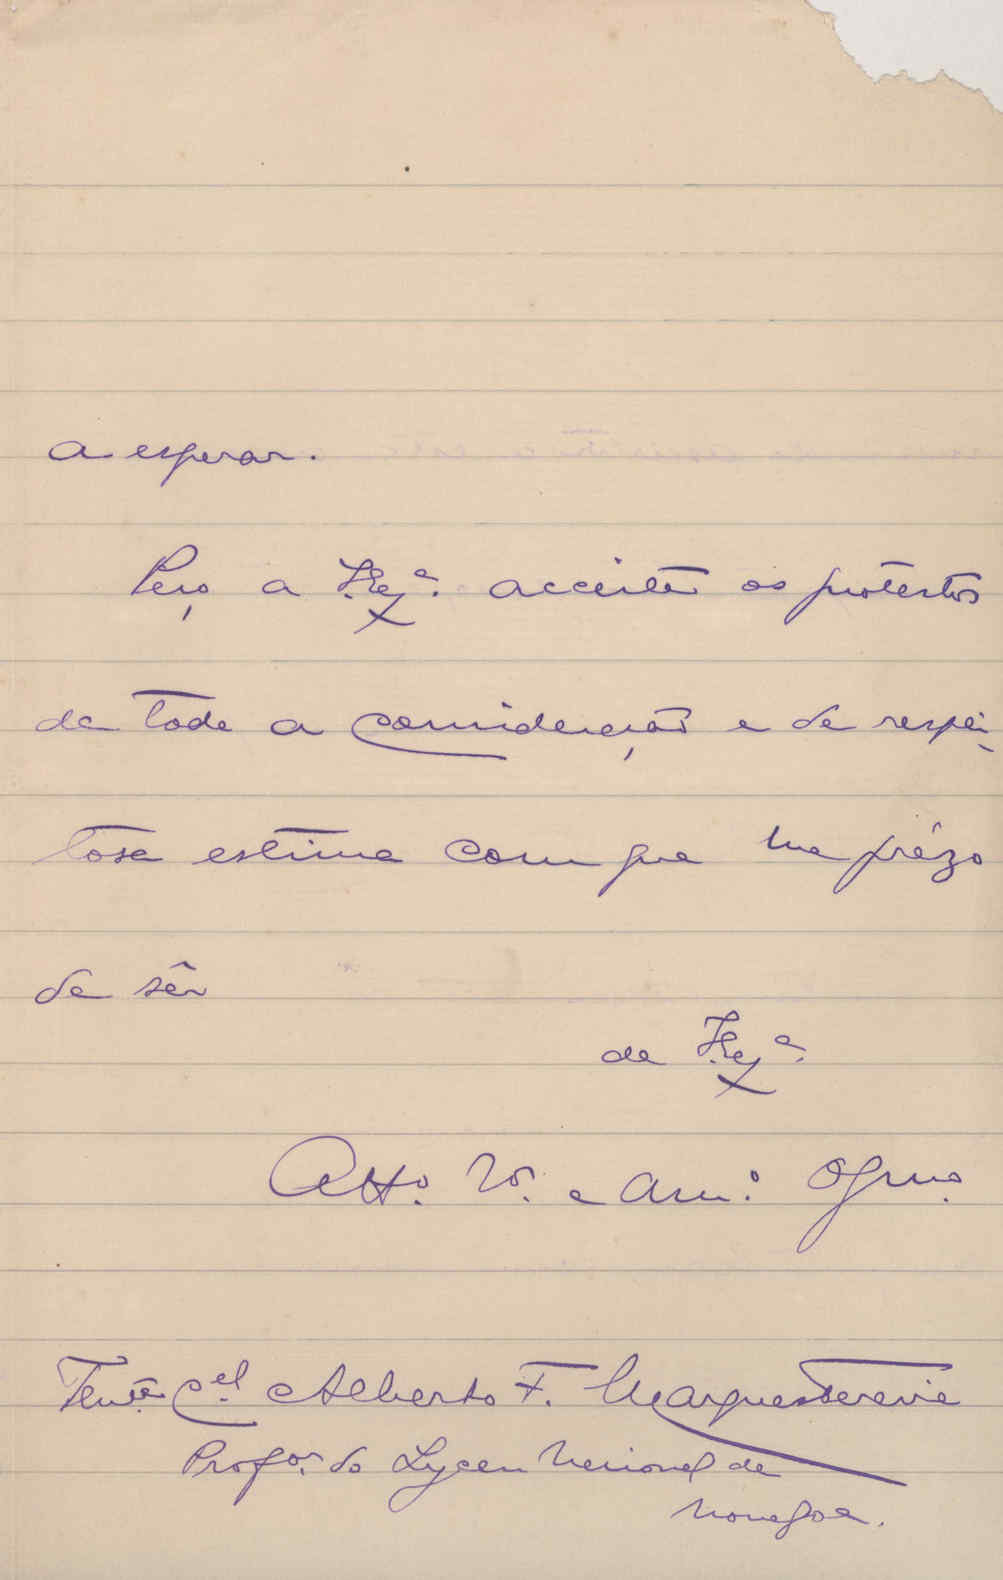 a esperar.
Peço a V. Exª. acceite os protestos
de toda a consideração e de respei-
tosa estima com que me prézo
de sêr
de V. Exª.
Attº. Vº. e Amº. Obgmº.
Tente. Cel. Alberto F. Marques Pereira
Profor. do Lyceu Nacional de
Novagoa.